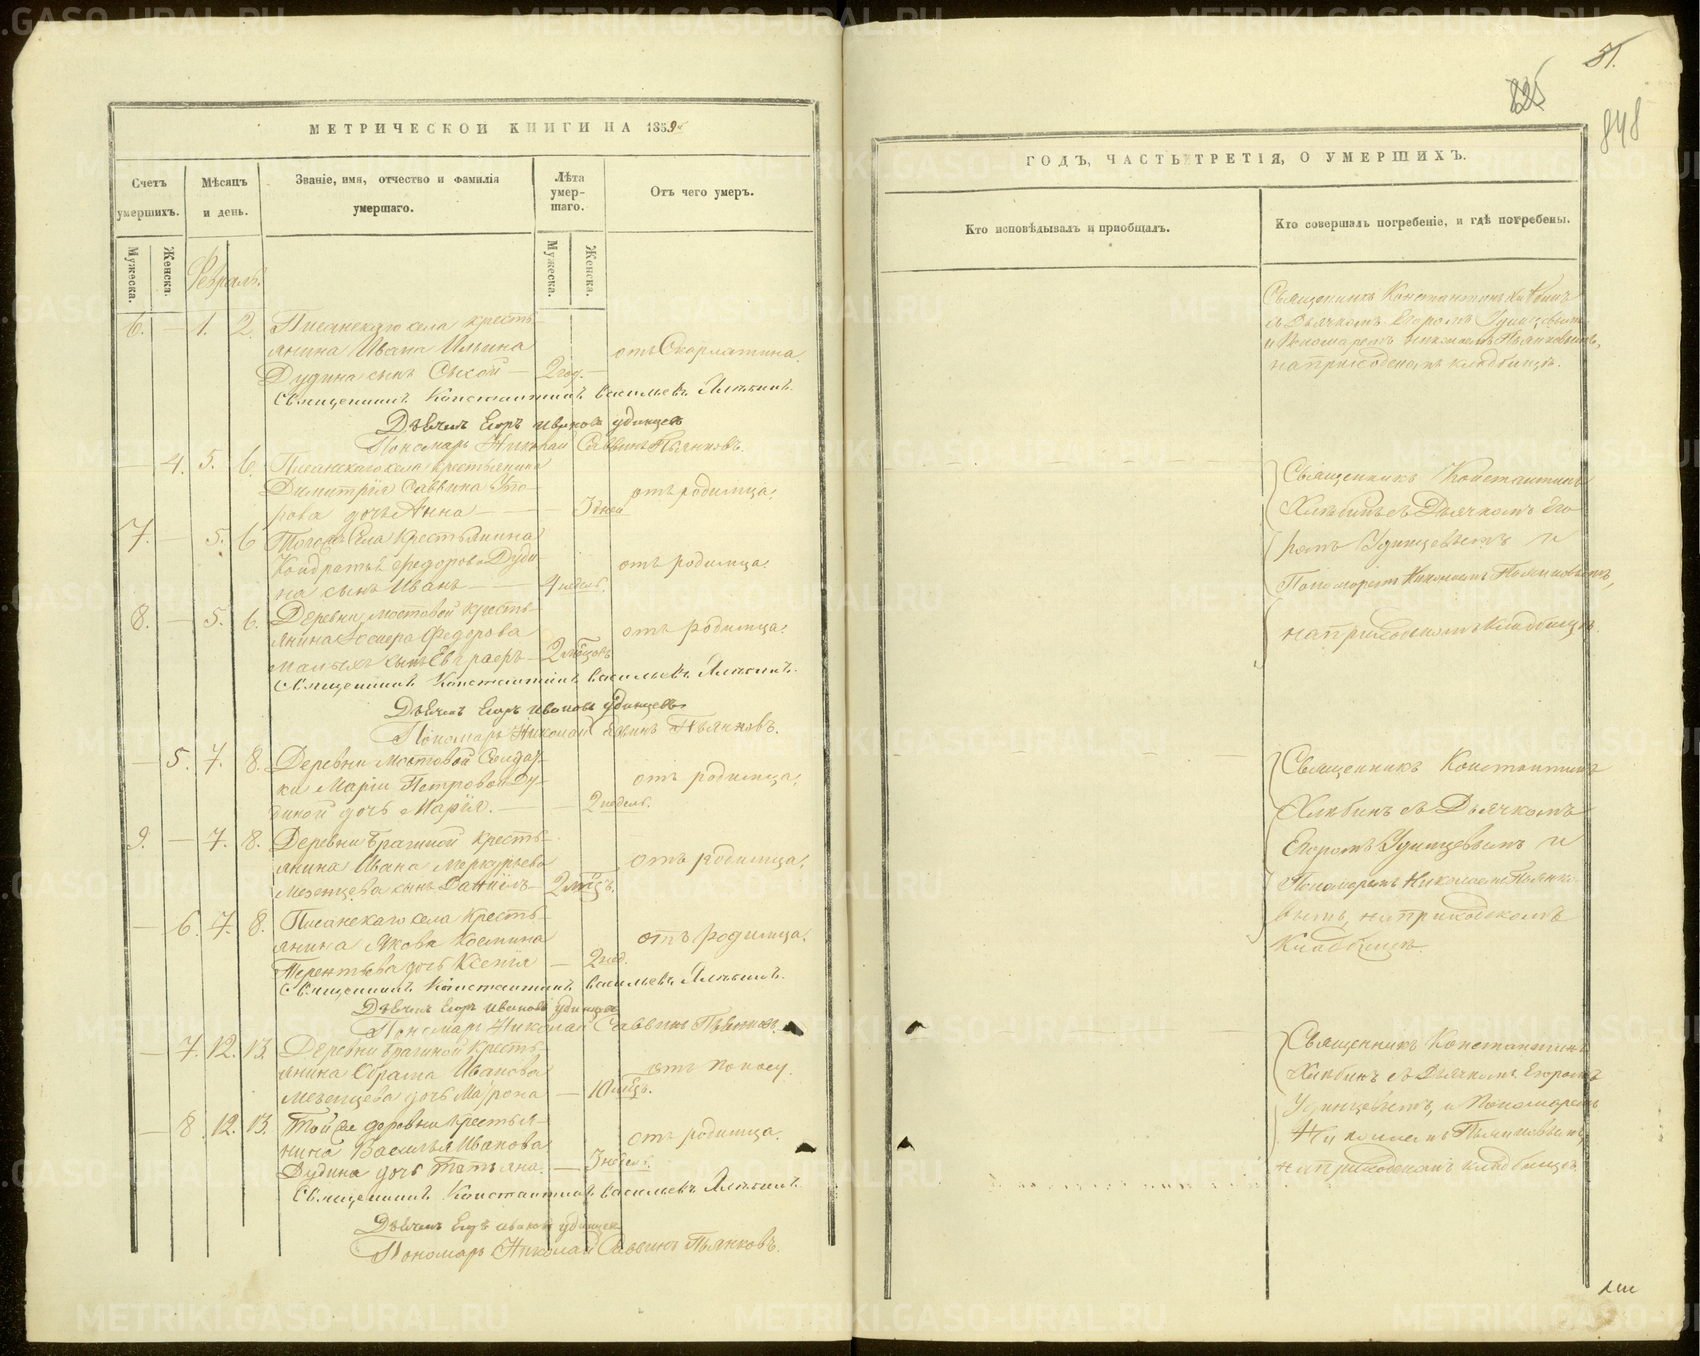 МЕТРИЧЕСКОЙ КНИГИ НА 1859
Счетъ умершихъ.
Мѣсяцъ и день.
Званіе, имя, отчество и фамилія умершаго.
Лѣта умер-шаго.
Отъ чего умеръ.
Мужеска.
Женска.
Мужеска.
Женска.
Февраль.
6. — 1. 2. Писанскаго села кресть-
янина Ивана Ильина
Дудина сынъ — 2 год. — отъ Скорлатина.
Священникъ Константинъ Васильевъ Хлѣбинъ.
Дьячекъ Егоръ Ивановъ Удинцевъ
Пономарь Николай Саввинъ Пьянковъ.
— 4. 5. 6. Писанскаго села крестьянина
Димитрія Саввина
дочь Анна — 3 дней отъ родимца.
7. — 5. 6. села крестьянина
Кондратья Федорова Дуди-
на сынъ Иванъ — 4 недель. отъ родимца.
8. — 5. 6. Деревни Мостовой кресть-
янина Федорова
сынъ — 2 мѣсцовъ отъ родимца.
Священникъ Константинъ Васильевъ Хлѣбинъ.
Дьячекъ Егоръ Ивановъ Удинцевъ
Пономарь Николай Саввинъ Пьянковъ.
— 5. 7. 8. Деревни Мостовой Солдат-
ки Маріи Петровой Ду-
диной дочь Марія. — 2 недель. отъ родимца.
9. — 7. 8. Деревни Брагиной кресть-
янина Ивана Меркурьева
Мезенцева сынъ Даніилъ — 2 мѣсцъ. отъ родимца.
— 6. 7. 8. Писанскаго села кресть-
янина Якова Космина
Терентьева дочь Ксенія — 2 год. отъ родимца.
Священникъ Константинъ Васильевъ Хлѣбинъ.
Дьячекъ Егоръ Ивановъ Удинцевъ
Пономарь Николай Саввинъ Пьянковъ.
— 7. 12. 13. Деревни Брагиной кресть-
янина Иванова
Мезенцева дочь Матрона — 10 мѣсцъ. отъ поносу.
— 8. 12. 13. Той же деревни крестья-
нина Василья Иванова
Дудина дочь Татьяна. — 3 недель. отъ родимца.
Священникъ Константинъ Васильевъ Хлѣбинъ.
Дьячекъ Егоръ Ивановъ Удинцевъ
Пономарь Николай Саввинъ Пьянковъ.
51.
825
848
ГОДЪ, ЧАСТЬ ТРЕТІЯ, О УМЕРШИХЪ.
Кто исповѣдывалъ и пріобщалъ.
Кто совершалъ погребеніе, и гдѣ погребены.
Священникъ Константинъ Хлѣбинъ
съ Дьячкомъ Егоромъ Удинцевымъ
и Пономаремъ Николаемъ Пьянковымъ,
на приходскомъ кладбищѣ.
Священникъ Константинъ
Хлѣбинъ съ Дьячкомъ Его-
ромъ Удинцевымъ и
Пономаремъ Николаемъ Пьянковымъ,
на приходскомъ кладбищѣ.
Священникъ Константинъ
Хлѣбинъ съ Дьячкомъ
Егоромъ Удинцевымъ и
Пономаремъ Николаемъ Пьянко-
вымъ, на приходскомъ
кладбищѣ.
Священникъ Константинъ
Хлѣбинъ съ Дьячкомъ Егоромъ
Удинцевымъ, и Пономаремъ
Николаемъ Пьянковымъ,
на приходскомъ кладбищѣ.
METRIKI.GASO-URAL.RU